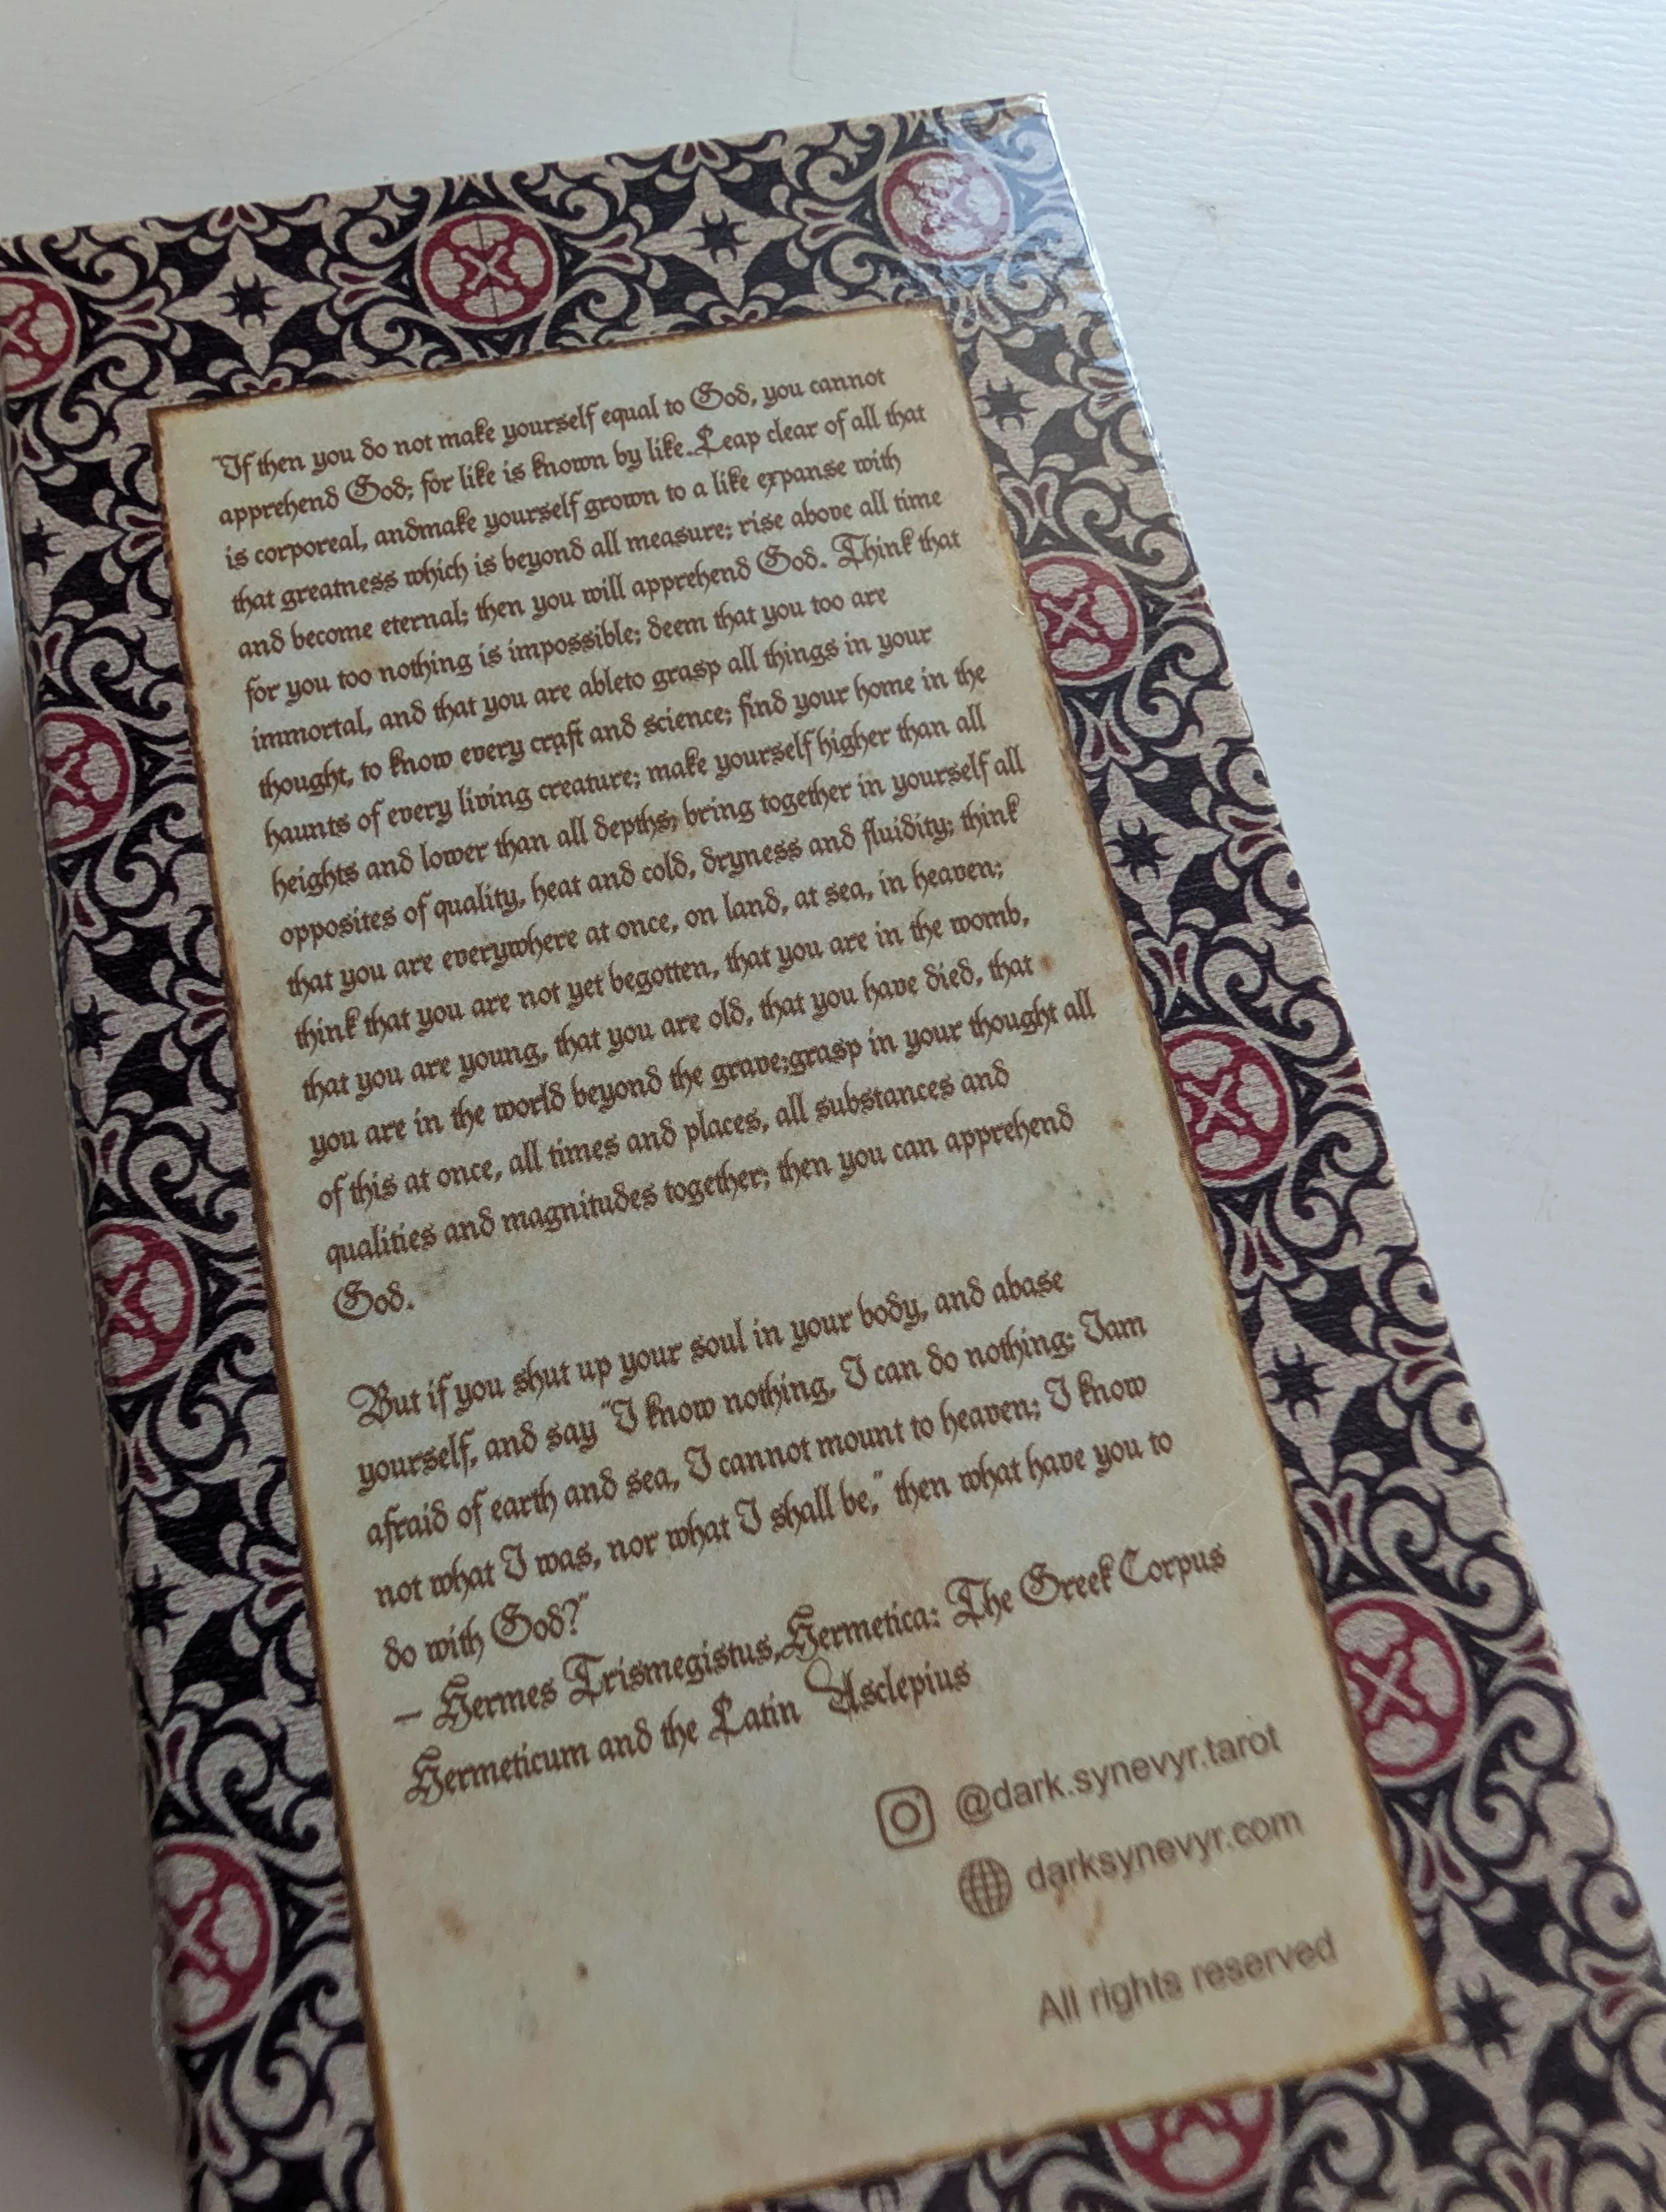 "If then you do not make yourself equal to God, you cannot
apprehend God; for like is known by like. Leap clear of all that
is corporeal, andmake yourself grown to a like expanse with
that greatness which is beyond all measure; rise above all time
and become eternal; then you will apprehend God. Think that
for you too nothing is impossible; deem that you too are
immortal, and that you are ableto grasp all things in your
thought, to know every craft and science; find your home in the
haunts of every living creature; make yourself higher than all
heights and lower than all depths; bring together in yourself all
opposites of quality, heat and cold, dryness and fluidity; think
that you are everywhere at once, on land, at sea, in heaven;
think that you are not yet begotten, that you are in the womb,
that you are young, that you are old, that you have died, that
you are in the world beyond the grave;grasp in your thought all
of this at once, all times and places, all substances and
qualities and magnitudes together; then you can apprehend
God.
But if you shut up your soul in your body, and abase
yourself, and say "I know nothing, I can do nothing; Iam
afraid of earth and sea, I cannot mount to heaven; I know
not what I was, nor what I shall be," then what have you to
do with God?"
— Hermes Trismegistus,Hermetica: The Greek Corpus
Hermeticum and the Latin Asclepius
@dark.synevyr.tarot
darksynevyr.com
All rights reserved